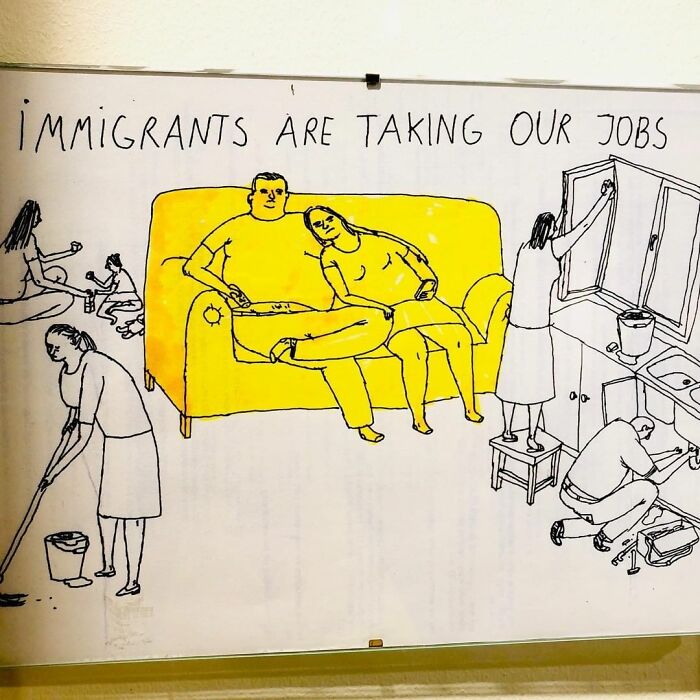 iMMiGRANTS ARE TAKING OUR JOBS